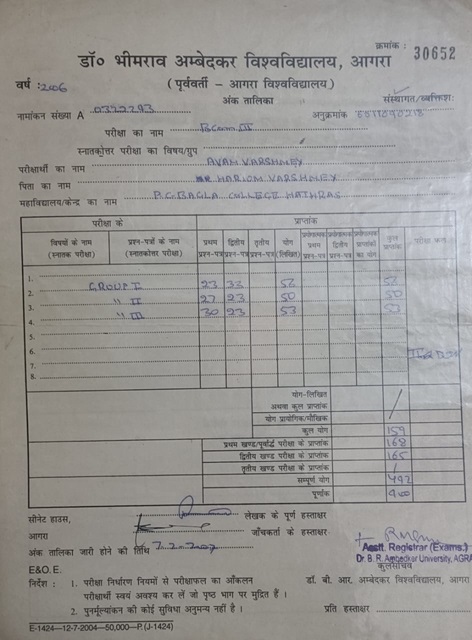 क्रमांक : 30652
डॉ० भीमराव अम्बेदकर विश्वविद्यालय, आगरा
वर्ष : 2006
(पूर्ववर्ती - आगरा विश्वविद्यालय)
अंक तालिका
संस्थागत/व्यक्तिग.
नामांकन संख्या A 0322293
अनुक्रमांक
परीक्षा का नाम B.Com III
स्नातकोत्तर परीक्षा का विषय/ग्रुप
परीक्षार्थी का नाम AVAM VARSHNEY
पिता का नाम HARIOM VARSHNEY
महाविद्यालय/केन्द्र का नाम P.C. BAGLA COLLEGE HATHRAS
परीक्षा के प्राप्तांक
विषयों के नाम (स्नातक परीक्षा) प्रश्न-पत्रों के नाम (स्नातकोत्तर परीक्षा) प्रथम प्रश्न-पत्र द्वितीय प्रश्न-पत्र तृतीय प्रश्न-पत्र योग (लिखित) प्रयोगात्मक प्रथम प्रश्न-पत्र प्रयोगात्मक द्वितीय प्रश्न-पत्र प्रयोगात्मक प्राप्तांकों का योग कुल प्राप्तांक
1.
2. GROUP I 23 33 56 56
3. " II 27 23 50 50
4. " III 30 23 53 53
5.
6.
7.
8.
योग-लिखित
अथवा कुल प्राप्तांक
योग प्रायोगिक/मौखिक
कुल योग 159
प्रथम खण्ड/पूर्वार्द्ध परीक्षा के प्राप्तांक 168
द्वितीय खण्ड परीक्षा के प्राप्तांक 165
तृतीय खण्ड परीक्षा के प्राप्तांक
सम्पूर्ण योग 492
पूर्णांक 900
सीनेट हाउस, लेखक के पूर्ण हस्ताक्षर
आगरा जाँचकर्ता के हस्ताक्षर
अंक तालिका जारी होने की तिथि 7.2.2007
Asstt. Registrar (Exams.)
कुलसचिव
Dr. B. R. Ambedkar University, AGRA
E&O.E.
निर्देश : 1. परीक्षा निर्धारण नियमों से परीक्षाफल का आँकलन डॉ. बी. आर. अम्बेडकर विश्वविद्यालय, आगरा
परीक्षार्थी स्वयं अवश्य कर लें जो पृष्ठ भाग पर मुद्रित हैं ।
2. पुनर्मूल्यांकन की कोई सुविधा अनुमन्य नहीं है । प्रति हस्ताक्षर
E-1424—12-7-2004—50,000—P. (J-1424)